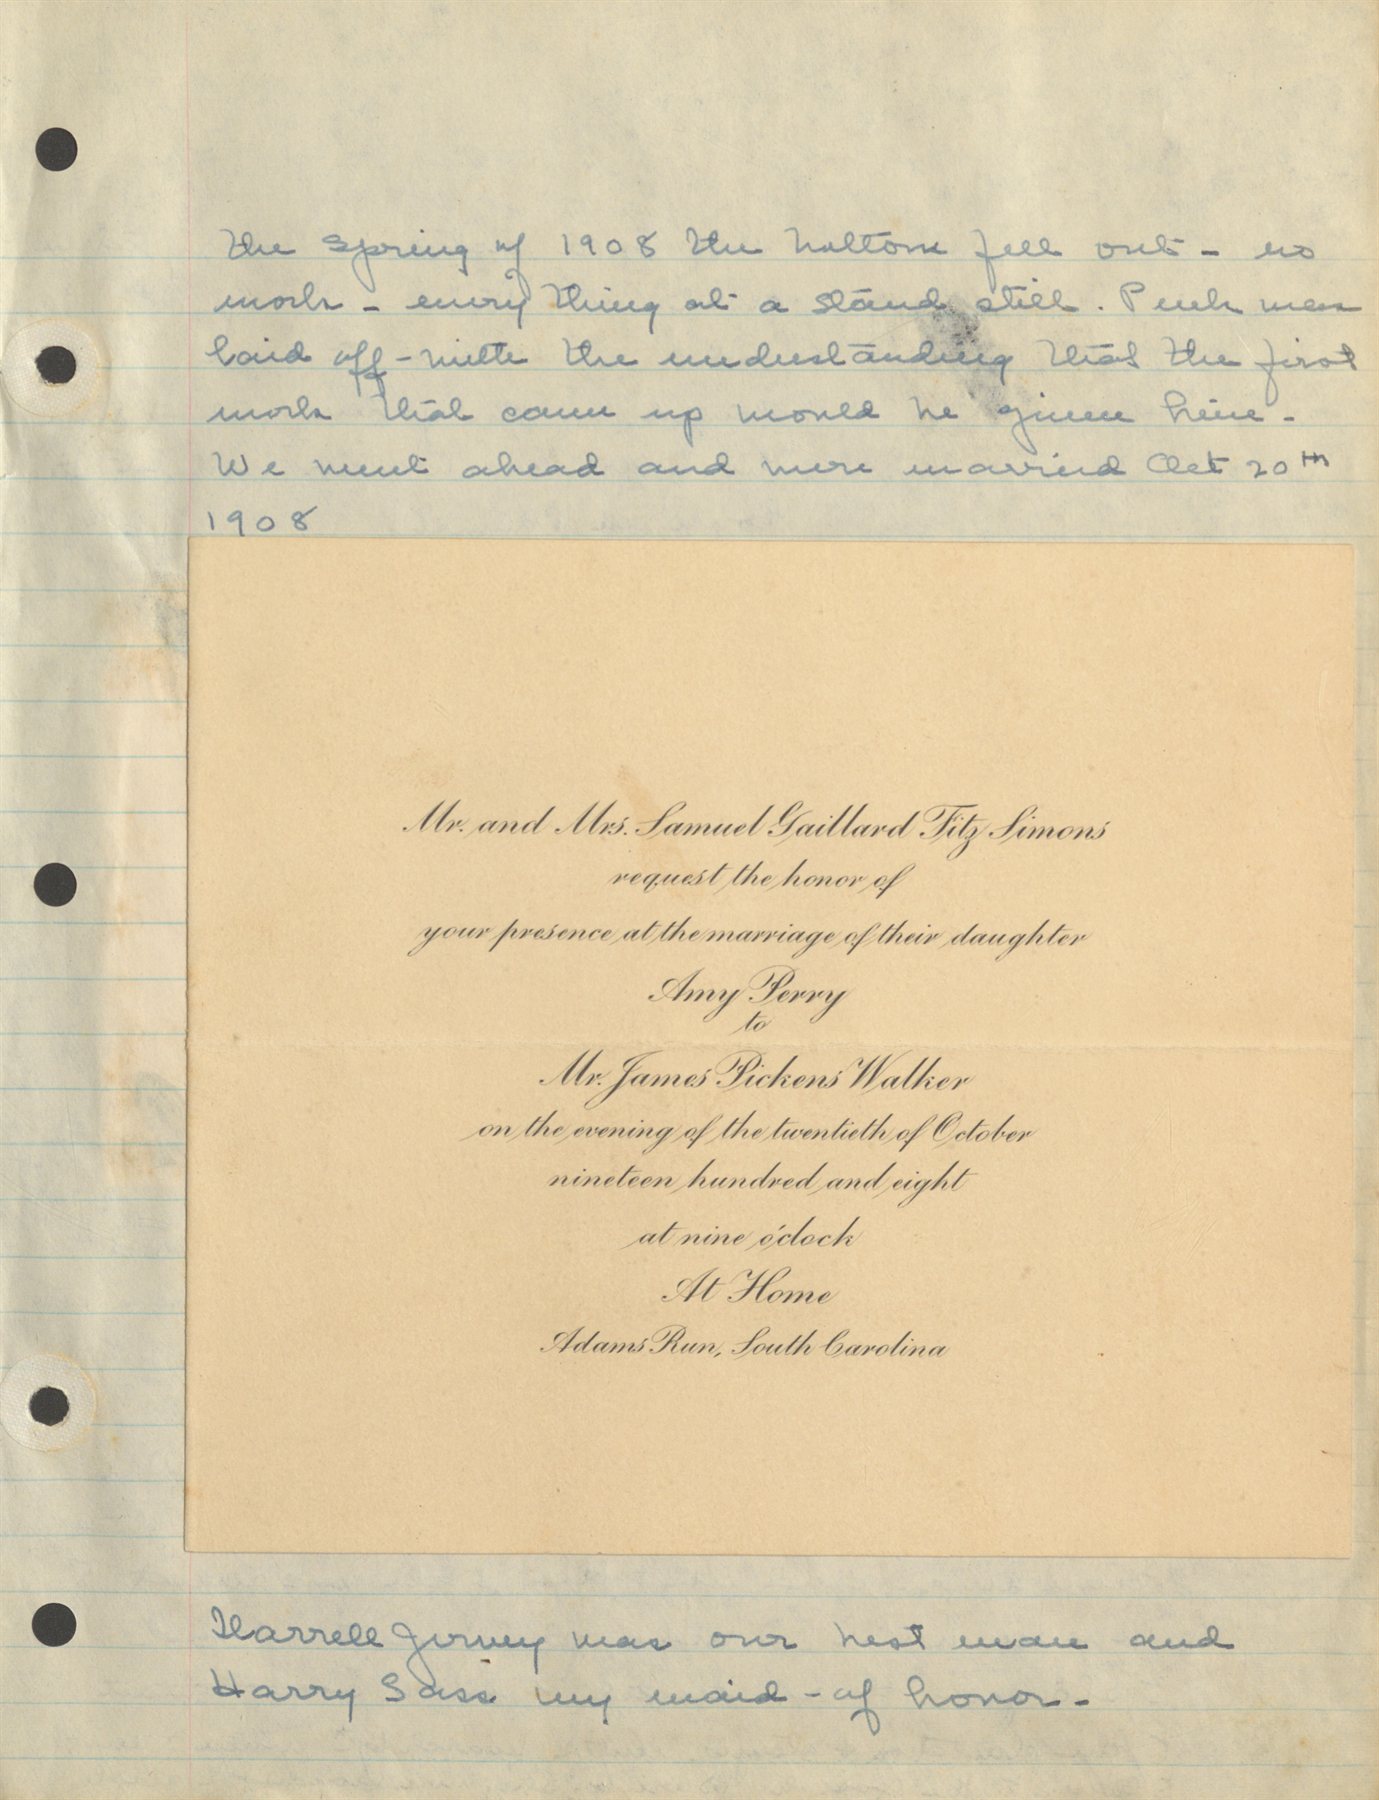 the spring of 1908 the bottom fell out - no
work - every thing at a stand still. Pick was
laid off - with the understanding that the first
work that came up would be given him -
We went ahead and were married Oct 20th
1908
Mr. and Mrs. Samuel Gaillard Fitz Simons
request the honor of
your presence at the marriage of their daughter
Amy Perry
to
Mr. James Pickens Walker
on the evening of the twentieth of October
nineteen hundred and eight
at nine o'clock
At Home
Adams Run, South Carolina
Harrell Jervey was our best man and
Harry Sass my maid - of honor -